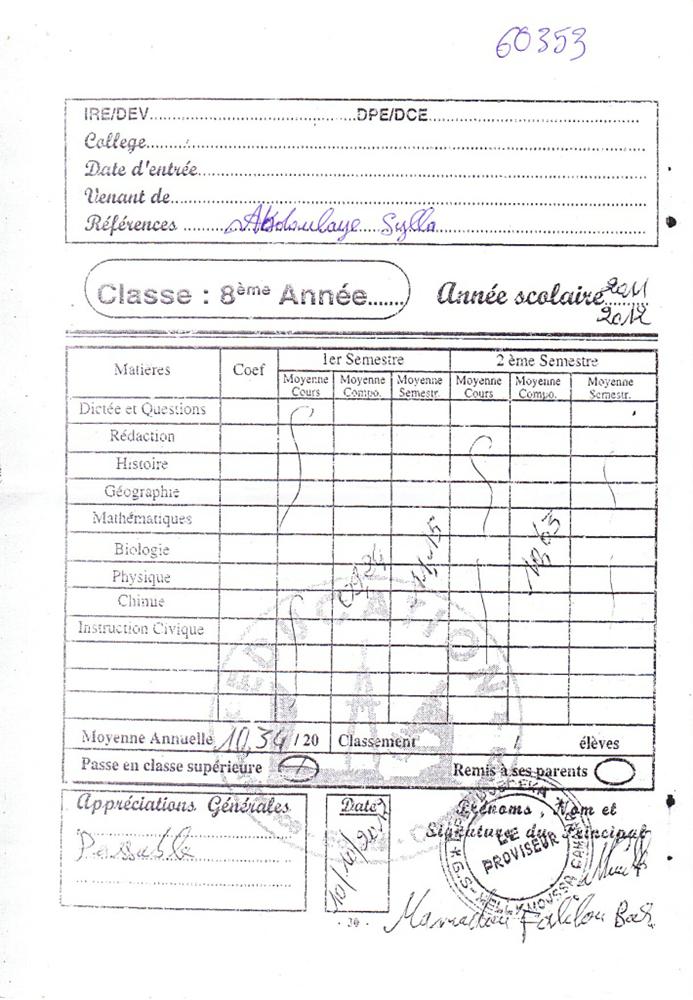 60353
IRE/DEV DPE/DCE
College
Date d'entrée
Venant de
Références Abdoulaye Sylla
Classe : 8ème Année
Année scolaire 2011
2012
Matières Coef 1er Semestre 2 ème Semestre
Moyenne Cours Moyenne Compo. Moyenne Semestr. Moyenne Cours Moyenne Compo. Moyenne Semestr.
Dictée et Questions
Rédaction
Histoire
Géographie
Mathématiques
Biologie
Physique
Chimie
Instruction Civique
EDUCATION
Moyenne Annuelle 10,34 / 20 Classement / élèves
Passe en classe supérieure Remis à ses parents
Appréciations Générales
Passable
Date
Prénoms, Nom et
Signature du Principal
LE
PROVISEUR
- 20 -